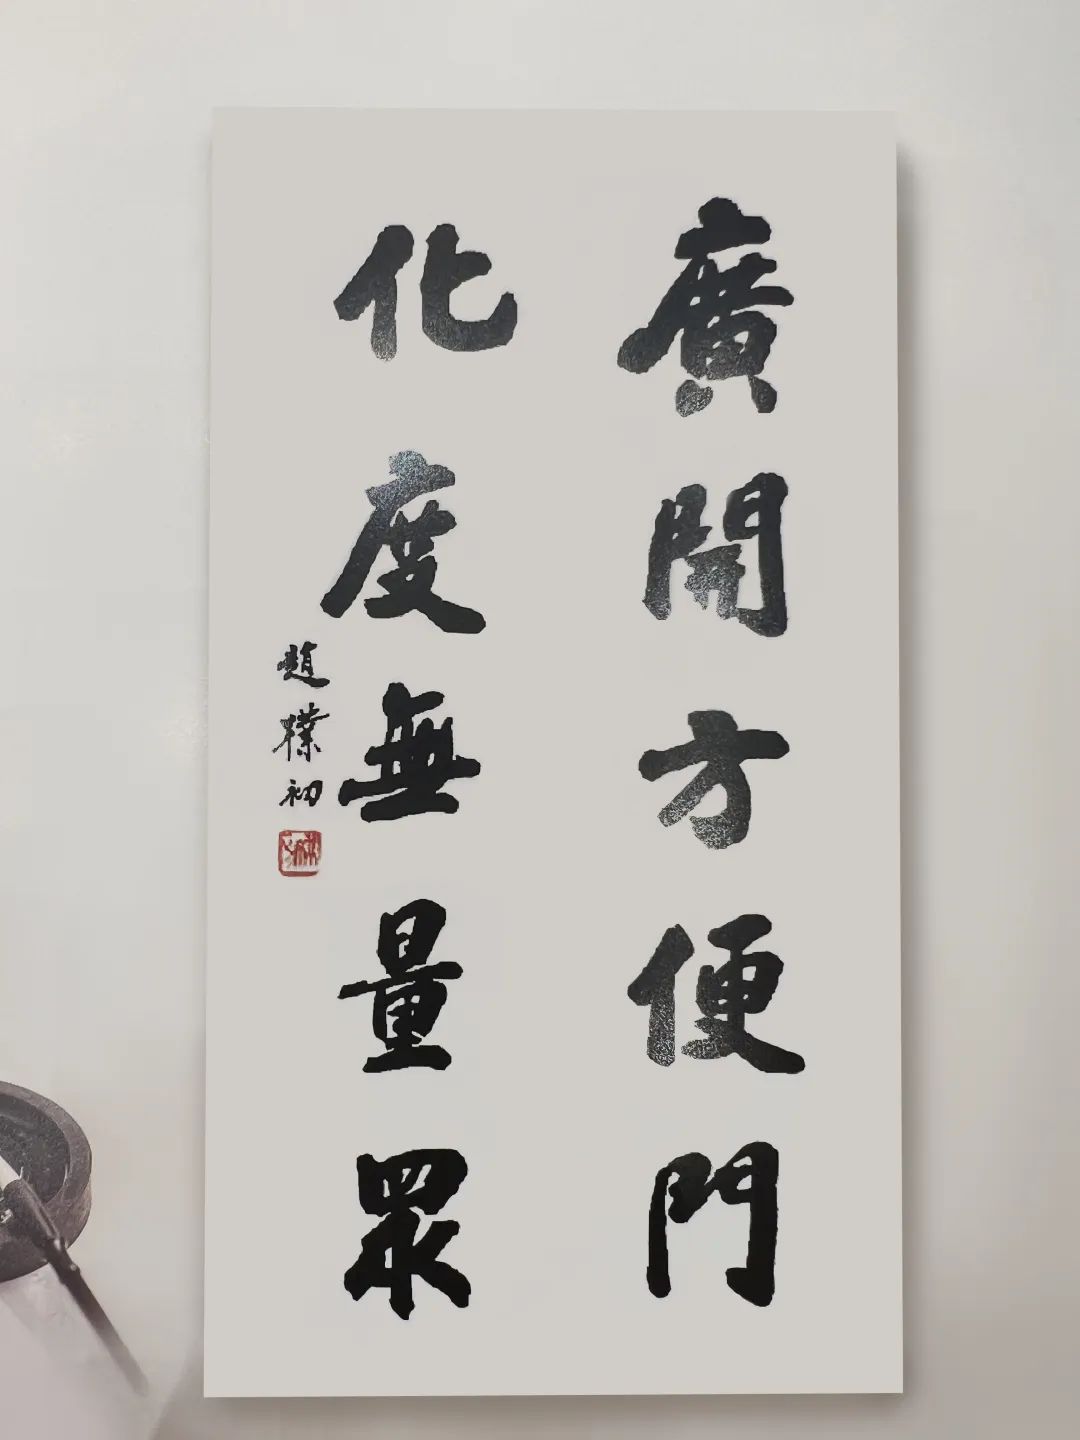 廣開方便門
化度無量眾
趙樸初